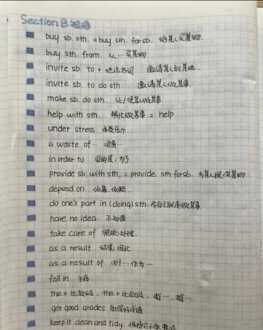 Section B 短语
buy sb. sth. = buy sth. for sb. 给某人买某物
buy sth. from 从…买某物
invite sb. to + 地点名词 邀请某人到某地
invite sb. to do sth. 邀请某人做某事
make sb. do sth. 让/使某人做某事
help with sth. 帮忙做某事 = help
under stress
a waste of 浪费
in order to 为了
provide sb. with sth. = provide sth. for sb. 为某人提供某物
depend on 依靠
do one's part in (doing) sth.
have no idea 不知道
take care of 照顾
as a result 结果
as a result of 由于…
fall in
the + 比较级, the + 比较级 越…越…
get good grades 取得好成绩
keep it clean and tidy